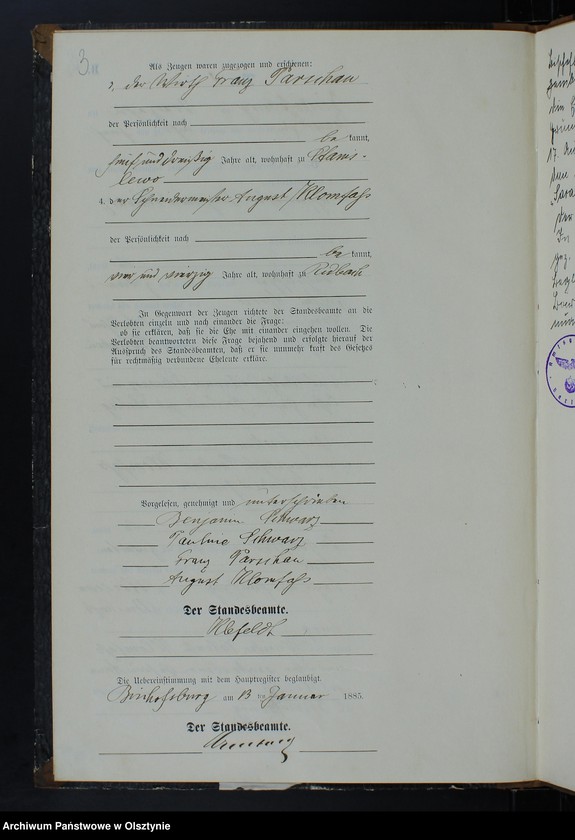 Als Zeugen waren zugezogen und erschienen:
3. der Wirth Franz Parschau
der Persönlichkeit nach
be kannt,
fünf und dreißig Jahre alt, wohnhaft zu Stanis-
lewo
4. der Schneidermeister August Klomfaß
der Persönlichkeit nach
be kannt,
vier und vierzig Jahre alt, wohnhaft zu Ridbach
In Gegenwart der Zeugen richtete der Standesbeamte an die
Verlobten einzeln und nach einander die Frage:
ob sie erklären, daß sie die Ehe mit einander eingehen wollen. Die
Verlobten beantworteten diese Frage bejahend und erfolgte hierauf der
Ausspruch des Standesbeamten, daß er sie nunmehr kraft des Gesetzes
für rechtmäßig verbundene Eheleute erkläre.
Vorgelesen, genehmigt und unterschrieben
Benjamin Schwarz
Pauline Schwarz
Franz Parschau
August Klomfaß
Der Standesbeamte.
Die Uebereinstimmung mit dem Hauptregister beglaubigt.
Bischofsburg am 13 ten Januar 1885.
Der Standesbeamte.
Archiwum Państwowe w Olsztynie